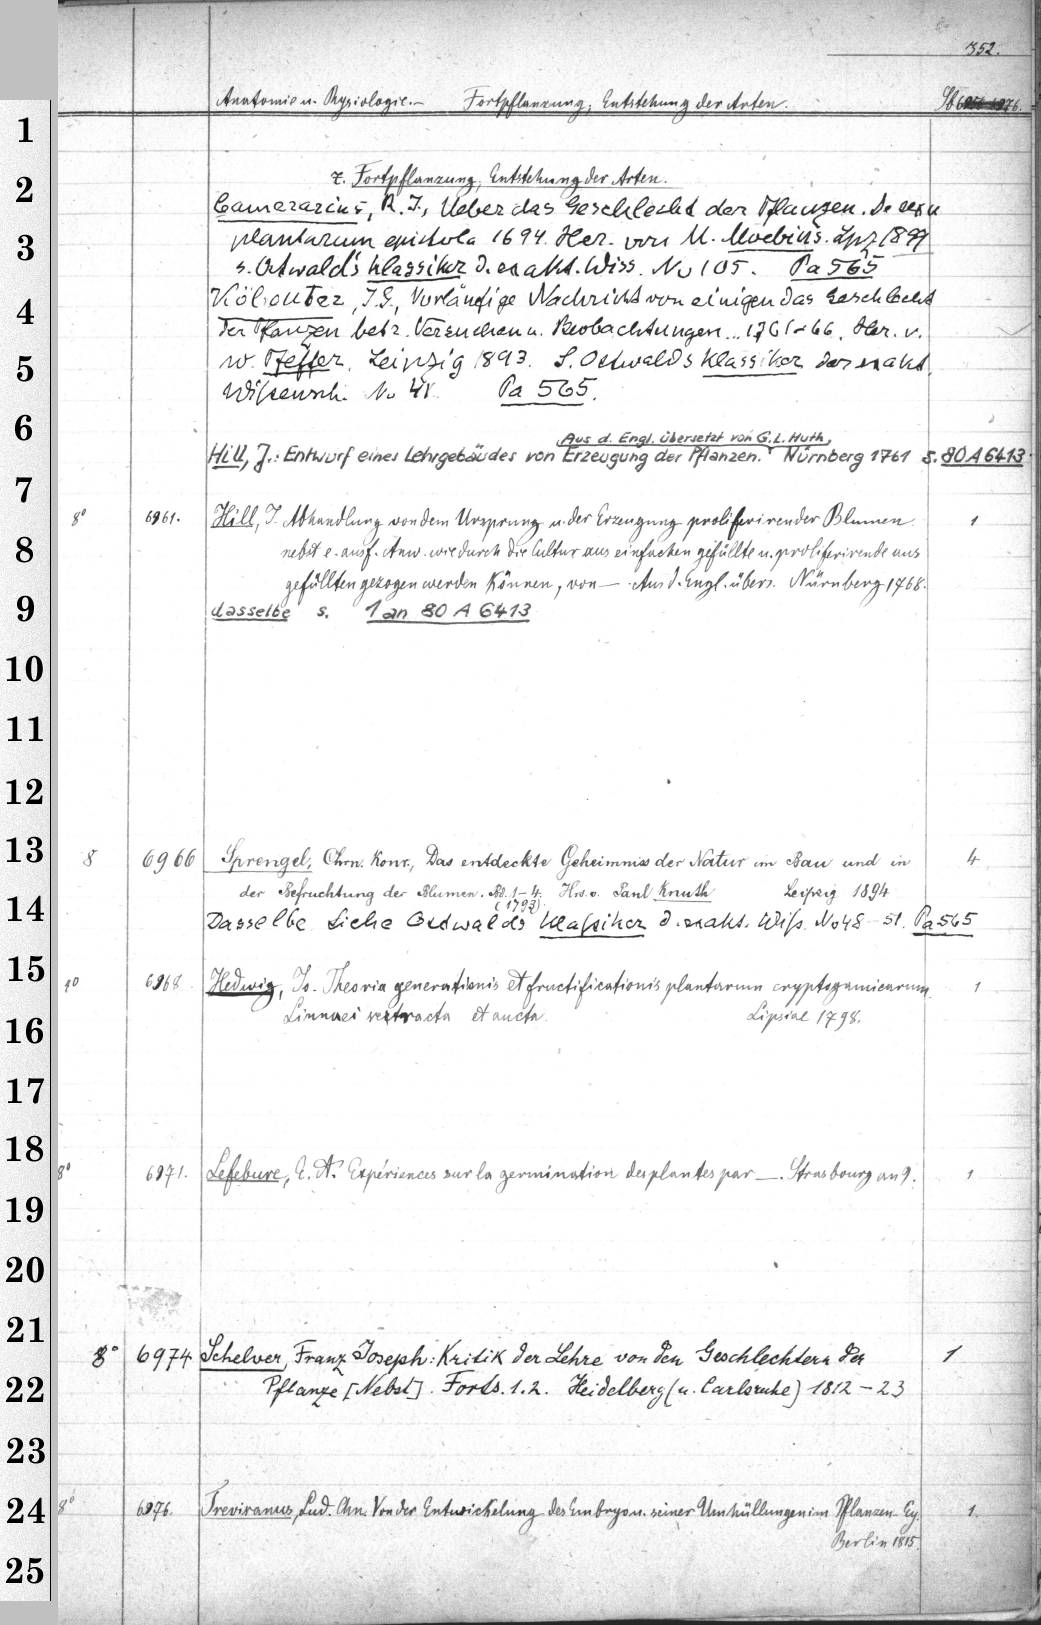 352.
Anatomie u. Physiologie.— Fortpflanzung, Entstehung der Arten. Sb 6976.
1
z. Fortpflanzung, Entstehung der Arten.
2
Camerarius, R. J., Ueber das Geschlecht der Pflanzen. De sexu
3
plantarum epistola 1694. Her. von M. Moebius. Lpz 1899
s. Ostwald's Klassiker d. exakt. Wiss. No 105. Pa 565
4
Kölreuter, J. G., Vorläufige Nachricht von einigen das Geschlecht
der Pflanzen betr. Versuchen u. Beobachtungen .. 1761-66. Her. v.
5
W. Pfeffer. Leipzig 1893. S. Ostwalds Klassiker der exakt.
Wissensch. No 41. Pa 565.
6
Aus d. Engl. übersetzt von G. L. Huth,
Hill, J.: Entwurf eines Lehrgebäudes von Erzeugung der Pflanzen. Nürnberg 1761 s. 80 A 6413
7
8° 6961. Hill, J. Abhandlung von dem Ursprung u. der Erzeugung proliferirender Blumen 1
8
nebst e. ausf. Anw. wie durch die Cultur aus einfachen gefüllte u. proliferirende aus
gefüllten gezogen werden können, von —. Aus d. Engl. übers. Nürnberg 1768.
9
dasselbe s. 1 an 80 A 6413
10
11
12
13
8 6966 Sprengel, Chrn. Konr., Das entdeckte Geheimniss der Natur im Bau und in 4
der Befruchtung der Blumen. Bd. 1-4. Hrs. v. Paul Knuth Leipzig 1894
(1793)
14
Dasselbe Siehe Ostwalds Klassiker d. exakt. Wiss. No 48-51. Pa 565
15
6968. Hedwig, Jo. Theoria generationis et fructificationis plantarum cryptogamicarum 1
16
Linnaei retracta et aucta. Lipsiae 1798.
17
18
8° 6971. Lefebure, E. A. Expériences sur la germination des plantes par —. Strasbourg an 9. 1
19
20
21
8° 6974 Schelver, Franz Joseph: Kritik der Lehre von den Geschlechtern der 1
22
Pflanze [Nebst] Forts. 1. 2. Heidelberg (u. Carlsruhe) 1812-23
23
24
8° 6976. Treviranus, Lud. Chn. Von der Entwickelung des Embryo u. seiner Umhüllungen im Pflanzen-Ey. 1.
Berlin 1815.
25